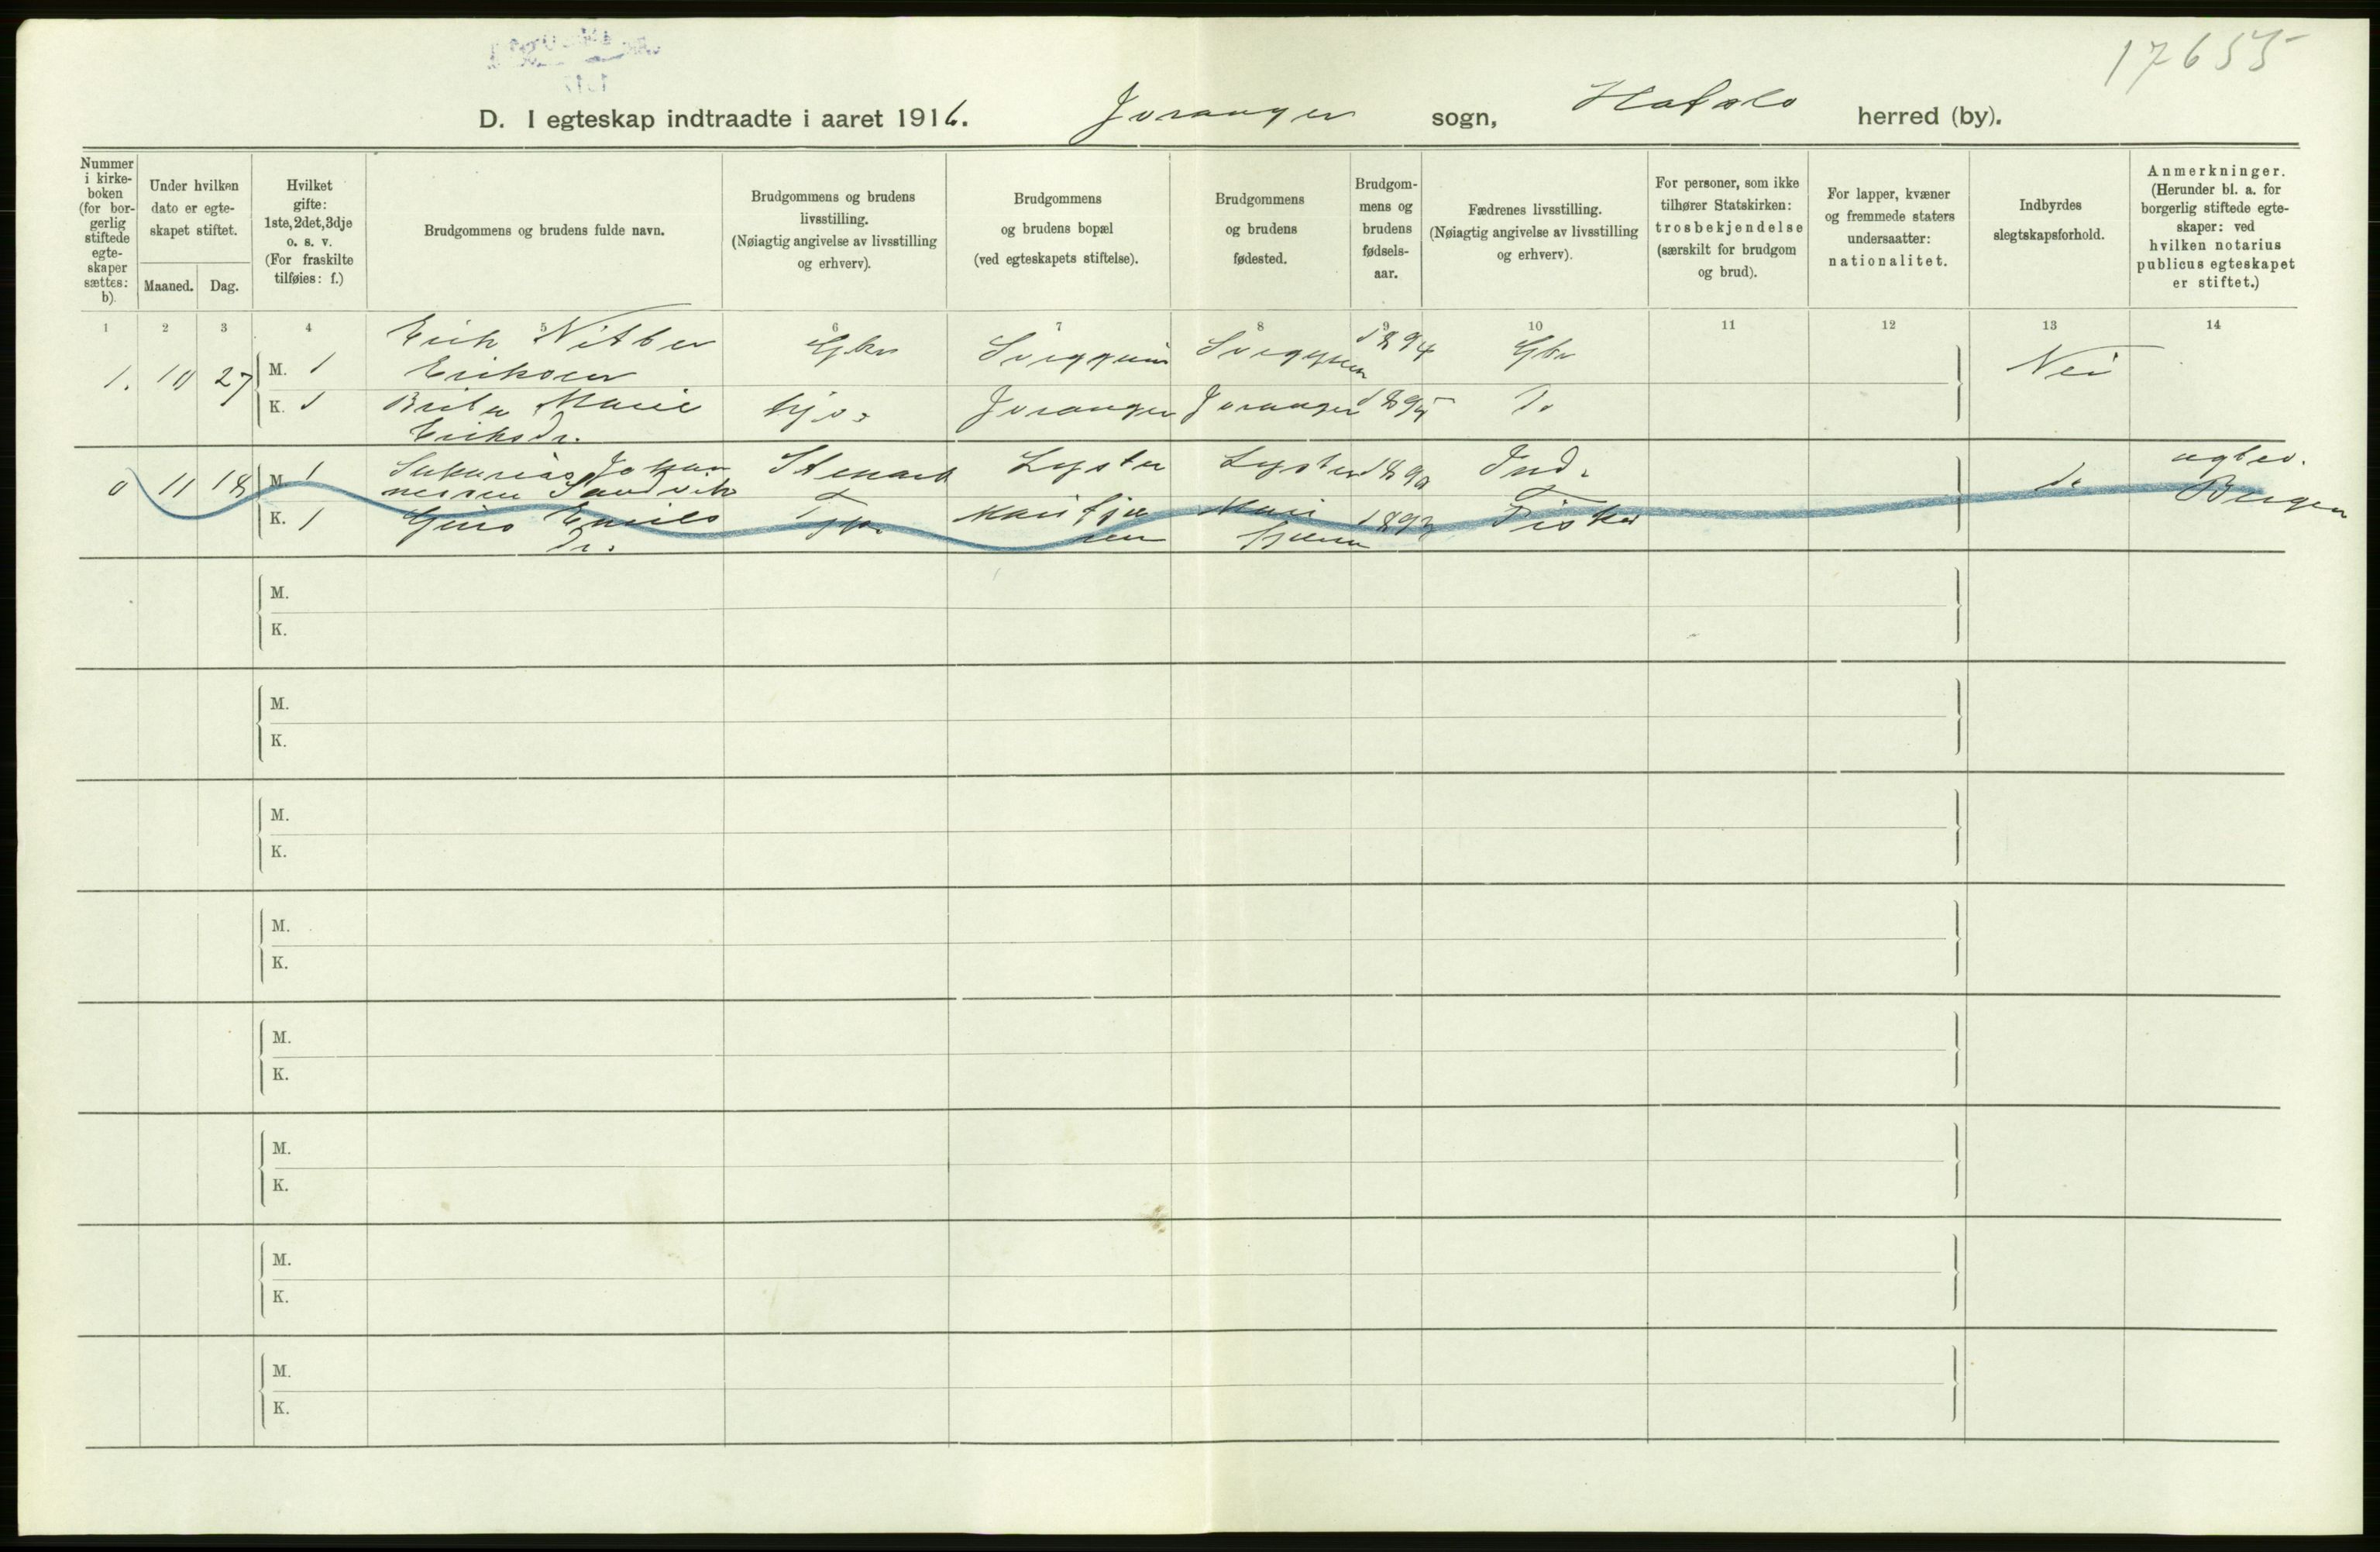 17655
D. I egteskap indtraadte i aaret 1916. Joranger sogn, Hafslo herred (by).
Nummer i kirke-boken (for bor-gerlig stiftede egte-skaper sættes: b).
Under hvilken dato er egte-skapet stiftet.
Maaned. Dag.
Hvilket gifte: 1ste, 2det, 3dje o. s. v. (For fraskilte tilføies: f.)
Brudgommens og brudens fulde navn.
Brudgommens og brudens livsstilling. (Nøiagtig angivelse av livsstilling og erhverv).
Brudgommens og brudens bopæl (ved egteskapets stiftelse).
Brudgommens og brudens fødested.
Brudgom-mens og brudens fødsels-aar.
Fædrenes livsstilling. (Nøiagtig angivelse av livsstilling og erhverv).
For personer, som ikke tilhører Statskirken: trosbekjendelse (særskilt for brudgom og brud).
For lapper, kvæner og fremmede staters undersaatter: nationalitet.
Indbyrdes slegtskapsforhold.
Anmerkninger. (Herunder bl. a. for borgerlig stiftede egte-skaper: ved hvilken notarius publicus egteskapet er stiftet.)
1 2 3 4 5 6 7 8 9 10 11 12 13 14
1. 10 27 M. 1 Erik Eriksen Gbr 1894 Gbr Nei
K. 1 Marie Eriksdr. Joranger Joranger 1895 Do
0 11 18 M. 1 Johan nessen Sandvik Lyster Lyster 1890 Ind.
K. 1 Emils dr. Fisker Bergen
M.
K.
M.
K.
M.
K.
M.
K.
M.
K.
M.
K.
M.
K.
M.
K.